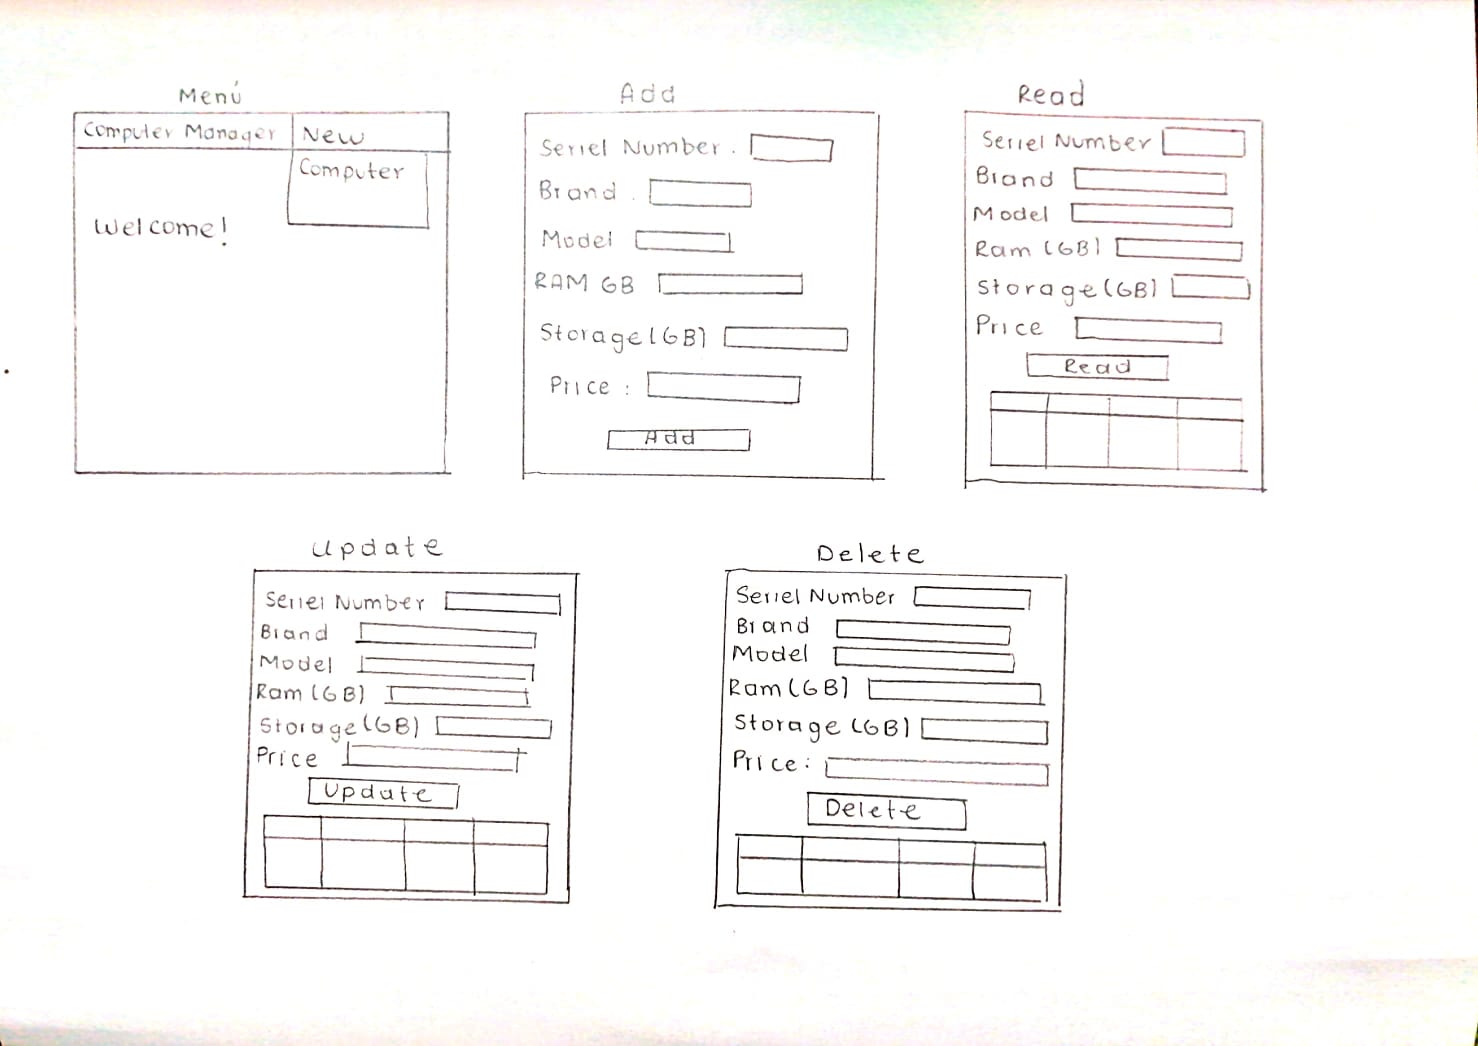 Menú
Computer Manager New
Computer
Welcome!
Add
Seriel Number.
Brand.
Model
RAM GB
Storage(GB)
Price:
Add
Read
Seriel Number
Brand
Model
Ram (GB)
Storage(GB)
Price
Read
Update
Seriel Number
Brand
Model
Ram (GB)
Storage(GB)
Price
Update
Delete
Seriel Number
Brand
Model
Ram (GB)
Storage (GB)
Price:
Delete